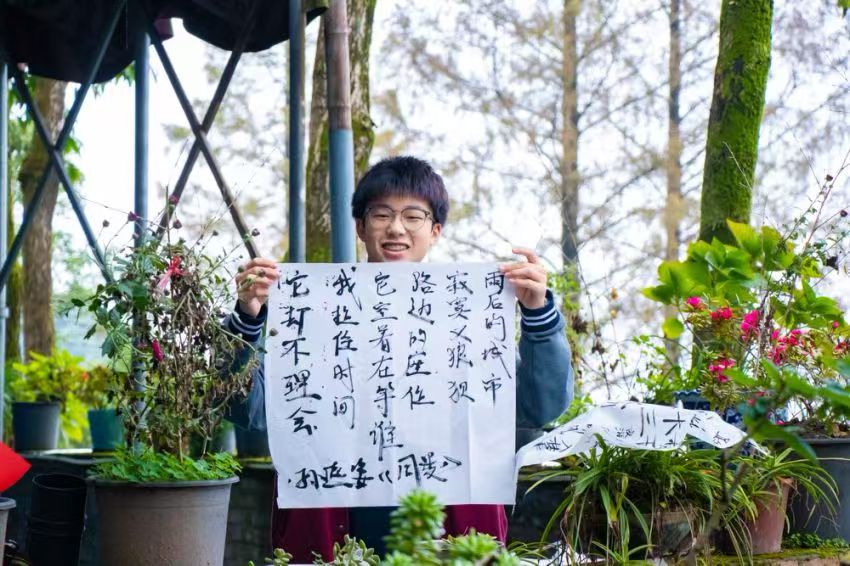 雨后的城市
寂寞又狼狈
路边的座位
它空着在等谁
我拉住时间
它却不理会
孙燕姿《同类》